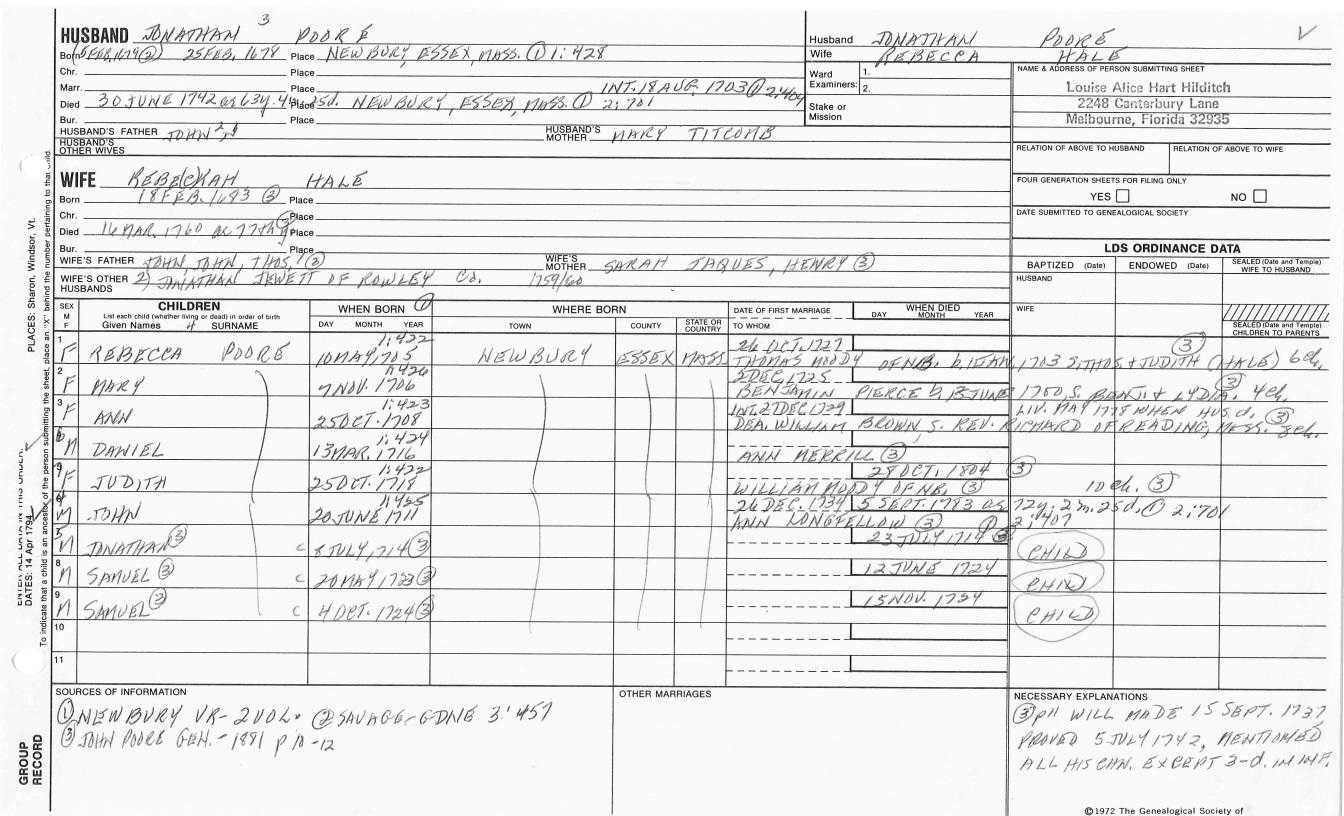 3
HUSBAND JONATHAN POORE
Born (5 FEB. 1679 ②) 25 FEB. 1678 Place NEWBURY, ESSEX, MASS. ① 1:428
Chr. Place
Marr. Place INT. 18 AUG. 1703 ① 2:404
Died 30 JUNE 1742 ae 63y. 4m. 25d. Place NEWBURY, ESSEX, MASS. ① 2:701
Bur. Place
HUSBAND'S FATHER JOHN 2, 1 HUSBAND'S MOTHER MARY TITCOMB
HUSBAND'S OTHER WIVES
Husband JONATHAN POORE
Wife REBECCA HALE
Ward Examiners: 1.
2.
Stake or Mission
NAME & ADDRESS OF PERSON SUBMITTING SHEET
Louise Alice Hart Hilditch
2248 Canterbury Lane
Melbourne, Florida 32935
RELATION OF ABOVE TO HUSBAND RELATION OF ABOVE TO WIFE
FOUR GENERATION SHEETS FOR FILING ONLY
YES NO
DATE SUBMITTED TO GENEALOGICAL SOCIETY
LDS ORDINANCE DATA
BAPTIZED (Date) ENDOWED (Date) SEALED (Date and Temple) WIFE TO HUSBAND
HUSBAND
WIFE
SEALED (Date and Temple) CHILDREN TO PARENTS
WIFE REBECKAH HALE
Born 18 FEB. 1683 ③ Place
Chr. Place
Died 16 MAR. 1760 ae 77th y ③ Place
Bur. Place
WIFE'S FATHER JOHN, JOHN, THOS. ③ WIFE'S MOTHER SARAH JAQUES, HENRY ③
WIFE'S OTHER HUSBANDS 2) JONATHAN JEWETT OF ROWLEY Co. 1759/60
SEX M F CHILDREN WHEN BORN ① WHERE BORN DATE OF FIRST MARRIAGE WHEN DIED
List each child (whether living or dead) in order of birth
Given Names 4 SURNAME DAY MONTH YEAR TOWN COUNTY STATE OR COUNTRY TO WHOM DAY MONTH YEAR
1 F REBECCA POORE 1:422 10 MAY 1705 NEWBURY ESSEX MASS 26 OCT. 1727 ③
THOMAS MOODY OF NB. b. 1 JAN. 1703 S. THOS. & JUDITH (HALE) 6 ch.
2 F MARY 1:426 7 NOV. 1706 2 DEC. 1725
BENJAMIN PIERCE b. 13 JUNE 1700, S. BENJ. & LYDIA. 4 ch. ③
3 F ANN 1:423 25 OCT. 1708 INT. 27 DEC. 1729 LIV. MAY 1778 WHEN HUS. d. ③
DEA. WILLIAM BROWN, S. REV. RICHARD OF READING, MASS. 8 ch.
6 M DANIEL 1:424 13 MAR. 1716
ANN MERRILL ③
7 F JUDITH 1:422 25 OCT. 1718 28 OCT. 1804 ③
WILLIAM MOODY OF NB. ③ 10 ch. ③
4 M JOHN 1:425 20 JUNE 1711 26 DEC. 1734 15 SEPT. 1783 ae 72y. 2m. 25d. ① 2:701
ANN LONGFELLOW ③ ① 2:407
5 M JONATHAN ③ C 8 JULY, 1714 ③ 23 JULY 1714 ③ CHILD
8 M SAMUEL ③ C 20 MAY 1723 ③ 12 JUNE 1724 CHILD
9 M SAMUEL ③ C 4 OCT. 1724 ③ 15 NOV. 1734 CHILD
10
11
SOURCES OF INFORMATION
① NEWBURY VR - 2 VOL. ② SAVAGE - GDNE 3:457
③ JOHN POORE GEN. - 1881 p 10-12
OTHER MARRIAGES
NECESSARY EXPLANATIONS
③ p11 WILL MADE 15 SEPT. 1737
PROVED 5 JULY 1742, MENTIONED
ALL HIS CHN. EXCEPT 3-d. IN INF.
©1972 The Genealogical Society of
PLACES: Sharon, Windsor, Vt.
DATES: 14 Apr 1794
To indicate that a child is an ancestor of the person submitting the sheet, place an "X" behind the number pertaining to that child.
GROUP RECORD